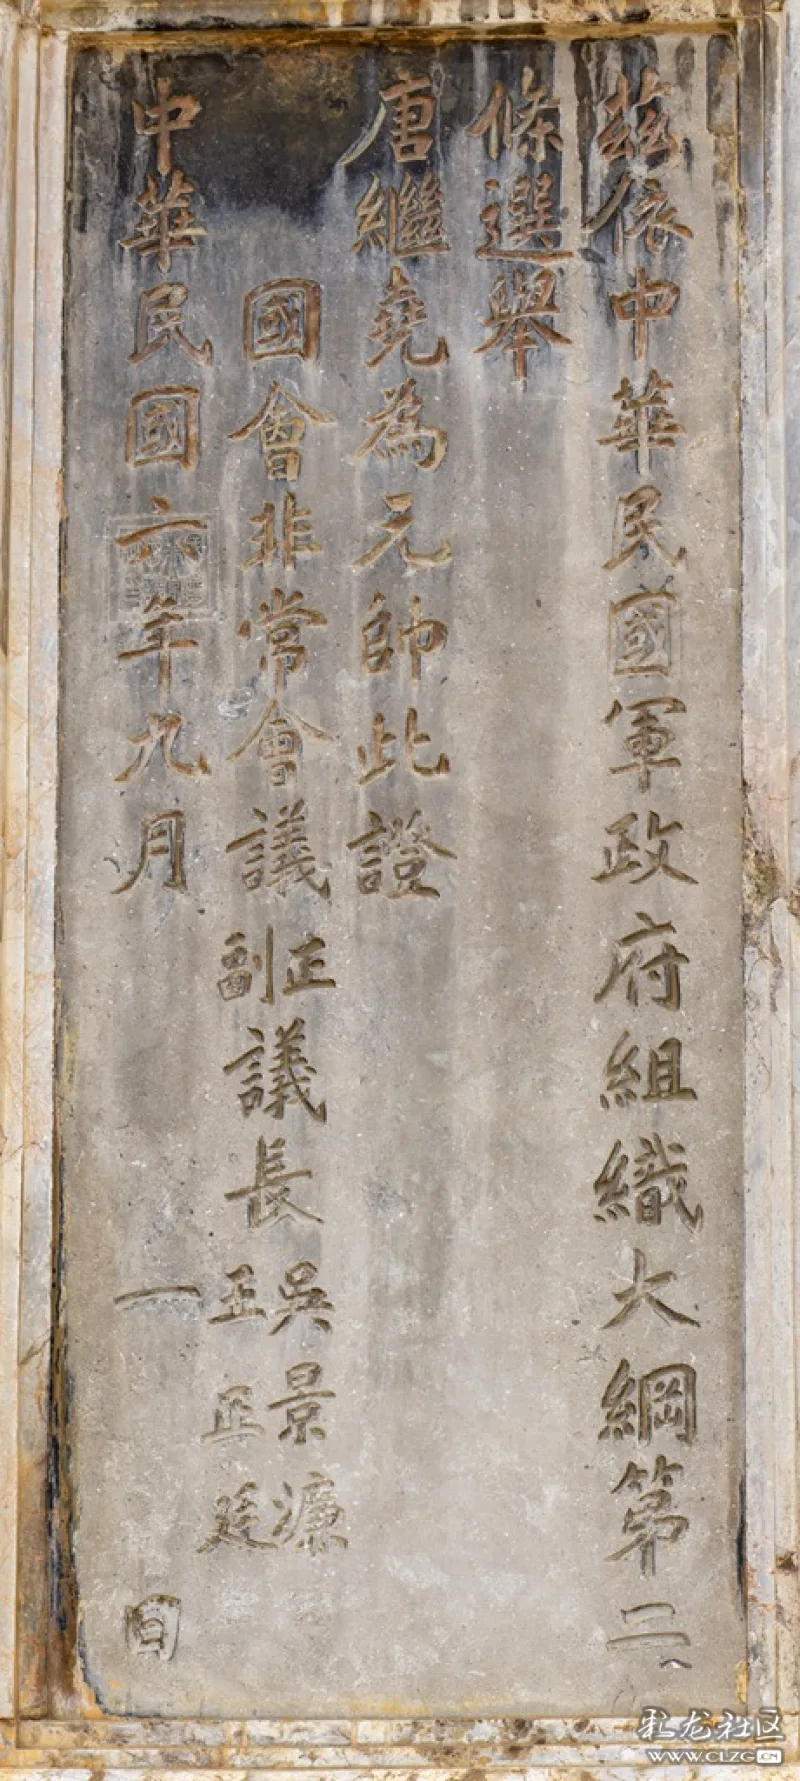 茲依中華民國軍政府組織大綱第二
條選舉
唐繼堯為元帥此證
國會非常會議正副議長吳景濂王正廷
中華民國六年九月一日
彩龙社区
www.CLZG.CN